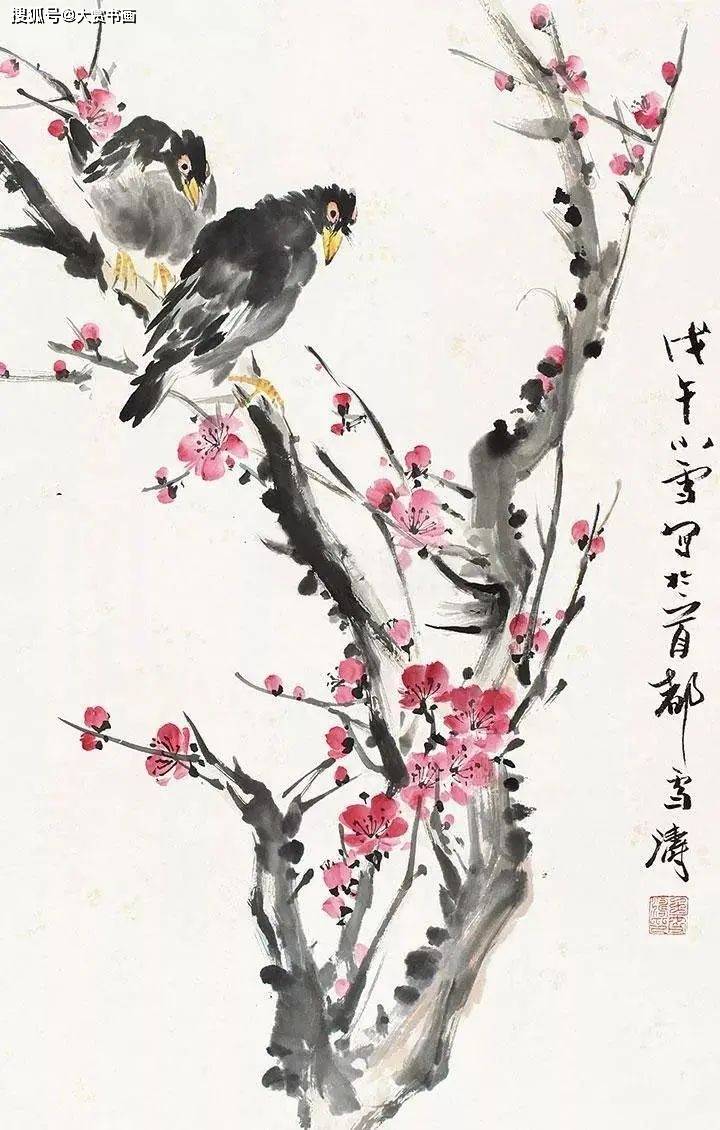 搜狐号@大赏书画
戊午小雪写於首都雪涛